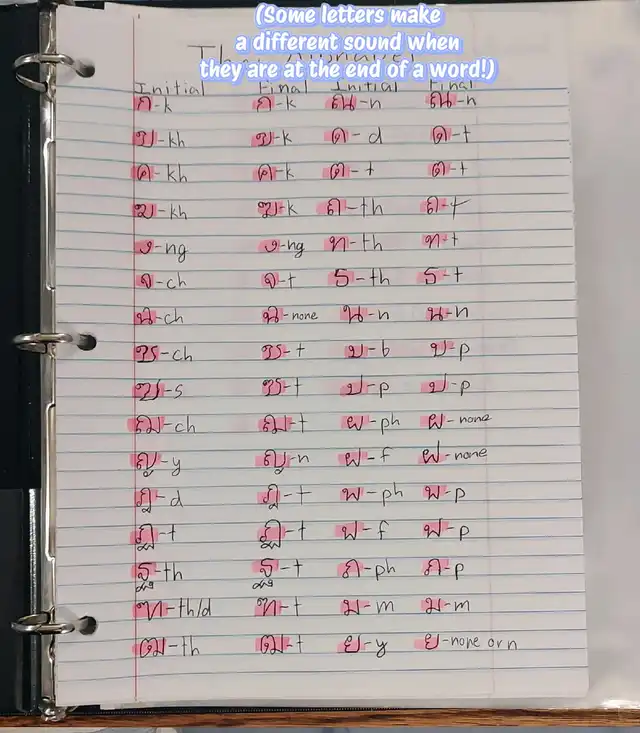 (Some letters make
a different sound when
they are at the end of a word!)
Thai Alphabet
Initial Final Initial Final
ก-k ก-k ณ-n ณ-n
ข-kh ข-k ด-d ด-t
ค-kh ค-k ต-t ต-t
ฆ-kh ฆ-k ถ-th ถ-t
ง-ng ง-ng ท-th ท-t
จ-ch จ-t ธ-th ธ-t
ฉ-ch ฉ-none น-n น-n
ช-ch ช-t บ-b บ-p
ซ-s ซ-t ป-p ป-p
ฌ-ch ฌ-t ผ-ph ผ-none
ญ-y ญ-n ฝ-f ฝ-none
ฎ-d ฎ-t พ-ph พ-p
ฏ-t ฏ-t ฟ-f ฟ-p
ฐ-th ฐ-t ภ-ph ภ-p
ฑ-th/d ฑ-t ม-m ม-m
ฒ-th ฒ-t ย-y ย-none or n